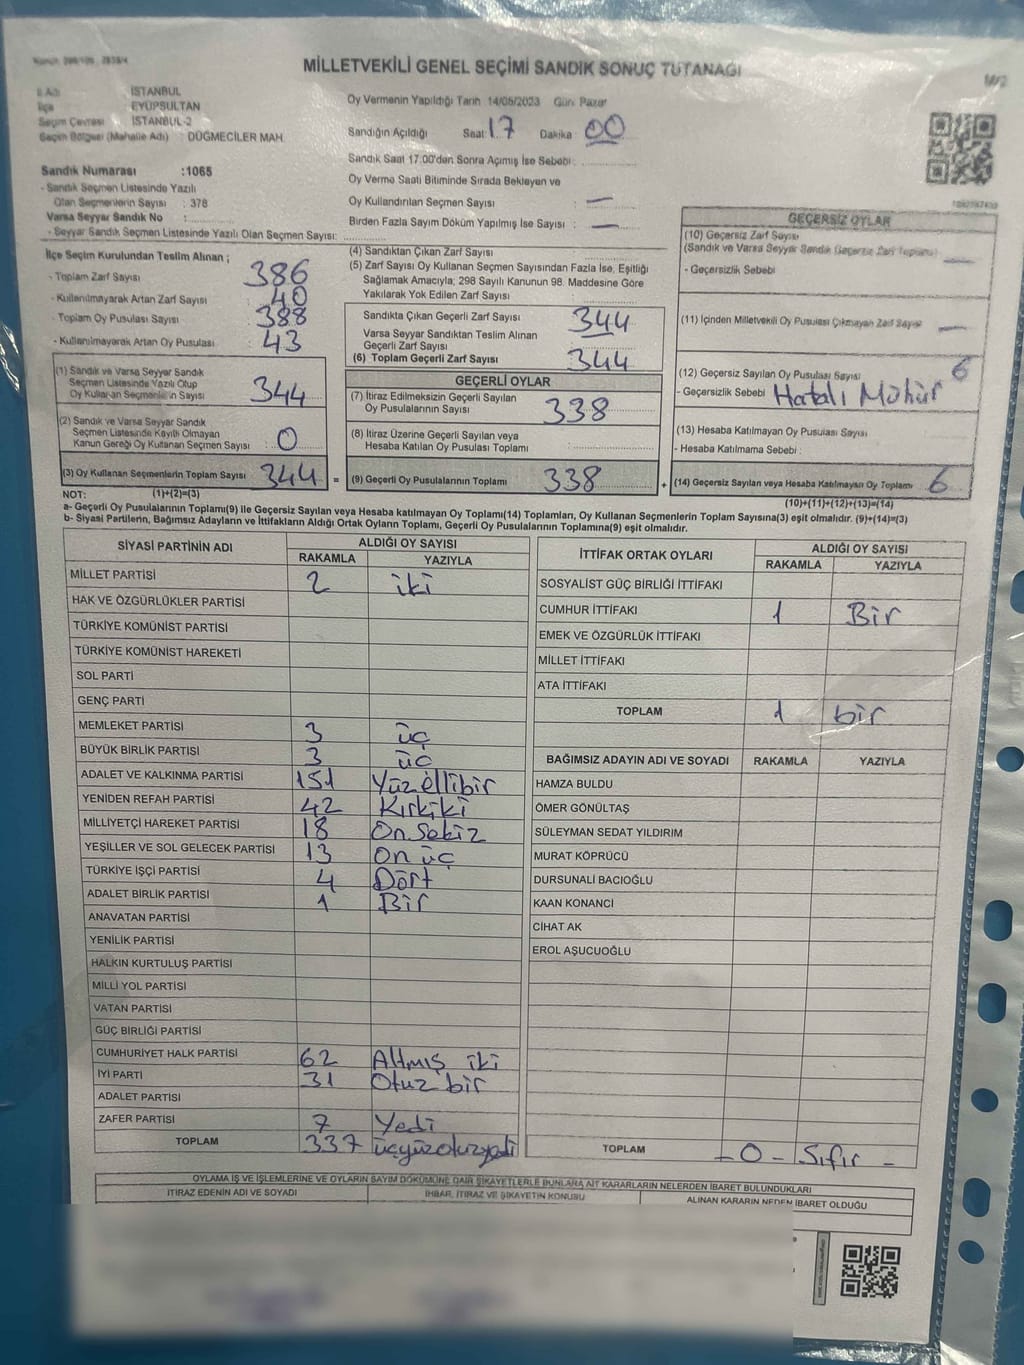 MİLLETVEKİLİ GENEL SEÇİMİ SANDIK SONUÇ TUTANAĞI
İl Adı : İSTANBUL
İlçe : EYÜPSULTAN
Seçim Çevresi : İSTANBUL-2
Seçim Bölgesi (Mahalle Adı) : DÜĞMECİLER MAH.
Oy Vermenin Yapıldığı Tarih 14/05/2023 Gün: Pazar
Sandığın Açıldığı Saat: 17 Dakika 00
Sandık Saat 17.00'den Sonra Açılmış İse Sebebi :
Oy Verme Saati Bitiminde Sırada Bekleyen ve
Oy Kullandırılan Seçmen Sayısı : —
Birden Fazla Sayım Döküm Yapılmış İse Sayısı : —
Sandık Numarası :1065
- Sandık Seçmen Listesinde Yazılı
Olan Seçmenlerin Sayısı : 378
Varsa Seyyar Sandık No :
- Seyyar Sandık Seçmen Listesinde Yazılı Olan Seçmen Sayısı:
İlçe Seçim Kurulundan Teslim Alınan ;
- Toplam Zarf Sayısı 386
- Kullanılmayarak Artan Zarf Sayısı 40
- Toplam Oy Pusulası Sayısı 388
- Kullanılmayarak Artan Oy Pusulası 43
(1) Sandık ve Varsa Seyyar Sandık
Seçmen Listesinde Yazılı Olup
Oy Kullanan Seçmenlerin Sayısı 344
(2) Sandık ve Varsa Seyyar Sandık
Seçmen Listesinde Kayıtlı Olmayan
Kanun Gereği Oy Kullanan Seçmen Sayısı : 0
(3) Oy Kullanan Seçmenlerin Toplam Sayısı 344 =
(4) Sandıktan Çıkan Zarf Sayısı
(5) Zarf Sayısı Oy Kullanan Seçmen Sayısından Fazla İse, Eşitliği
Sağlamak Amacıyla, 298 Sayılı Kanunun 98. Maddesine Göre
Yakılarak Yok Edilen Zarf Sayısı :
Sandıkta Çıkan Geçerli Zarf Sayısı 344
Varsa Seyyar Sandıktan Teslim Alınan
Geçerli Zarf Sayısı :
(6) Toplam Geçerli Zarf Sayısı 344
GEÇERLİ OYLAR
(7) İtiraz Edilmeksizin Geçerli Sayılan
Oy Pusulalarının Sayısı 338
(8) İtiraz Üzerine Geçerli Sayılan veya
Hesaba Katılan Oy Pusulası Toplamı
(9) Geçerli Oy Pusulalarının Toplamı 338 +
GEÇERSİZ OYLAR
(10) Geçersiz Zarf Sayısı
(Sandık ve Varsa Seyyar Sandık Geçersiz Zarf Toplamı) —
- Geçersizlik Sebebi
(11) İçinden Milletvekili Oy Pusulası Çıkmayan Zarf Sayısı —
(12) Geçersiz Sayılan Oy Pusulası Sayısı 6
- Geçersizlik Sebebi Hatalı Mühür
(13) Hesaba Katılmayan Oy Pusulası Sayısı
- Hesaba Katılmama Sebebi :
(14) Geçersiz Sayılan veya Hesaba Katılmayan Oy Toplamı 6
NOT: (1)+(2)=(3) (10)+(11)+(12)+(13)=(14)
a- Geçerli Oy Pusulalarının Toplamı(9) ile Geçersiz Sayılan veya Hesaba katılmayan Oy Toplamı(14) Toplamları, Oy Kullanan Seçmenlerin Toplam Sayısına(3) eşit olmalıdır. (9)+(14)=(3)
b- Siyasi Partilerin, Bağımsız Adayların ve İttifakların Aldığı Ortak Oyların Toplamı, Geçerli Oy Pusulalarının Toplamına(9) eşit olmalıdır.
SİYASİ PARTİNİN ADI ALDIĞI OY SAYISI
RAKAMLA YAZIYLA
MİLLET PARTİSİ 2 iki
HAK VE ÖZGÜRLÜKLER PARTİSİ
TÜRKİYE KOMÜNİST PARTİSİ
TÜRKİYE KOMÜNİST HAREKETİ
SOL PARTİ
GENÇ PARTİ
MEMLEKET PARTİSİ 3 üç
BÜYÜK BİRLİK PARTİSİ 3 üç
ADALET VE KALKINMA PARTİSİ 151 Yüzellibir
YENİDEN REFAH PARTİSİ 42 Kırkiki
MİLLİYETÇİ HAREKET PARTİSİ 18 On Sekiz
YEŞİLLER VE SOL GELECEK PARTİSİ 13 on üç
TÜRKİYE İŞÇİ PARTİSİ 4 Dört
ADALET BİRLİK PARTİSİ 1 Bir
ANAVATAN PARTİSİ
YENİLİK PARTİSİ
HALKIN KURTULUŞ PARTİSİ
MİLLİ YOL PARTİSİ
VATAN PARTİSİ
GÜÇ BİRLİĞİ PARTİSİ
CUMHURİYET HALK PARTİSİ 62 Altmış iki
İYİ PARTİ 31 Otuz bir
ADALET PARTİSİ
ZAFER PARTİSİ 7 Yedi
TOPLAM 337 üçyüzotuzyedi
İTTİFAK ORTAK OYLARI ALDIĞI OY SAYISI
RAKAMLA YAZIYLA
SOSYALİST GÜÇ BİRLİĞİ İTTİFAKI
CUMHUR İTTİFAKI 1 Bir
EMEK VE ÖZGÜRLÜK İTTİFAKI
MİLLET İTTİFAKI
ATA İTTİFAKI
TOPLAM 1 bir
BAĞIMSIZ ADAYIN ADI VE SOYADI RAKAMLA YAZIYLA
HAMZA BULDU
ÖMER GÖNÜLTAŞ
SÜLEYMAN SEDAT YILDIRIM
MURAT KÖPRÜCÜ
DURSUNALİ BACIOĞLU
KAAN KONANCI
CİHAT AK
EROL AŞUCUOĞLU
TOPLAM -0- Sıfır -
OYLAMA İŞ VE İŞLEMLERİNE VE OYLARIN SAYIM DÖKÜMÜNE DAİR ŞİKAYETLERLE BUNLARA AİT KARARLARIN NELERDEN İBARET BULUNDUKLARI
İTİRAZ EDENİN ADI VE SOYADI İHBAR, İTİRAZ VE ŞİKAYETİN KONUSU ALINAN KARARIN NEDEN İBARET OLDUĞU